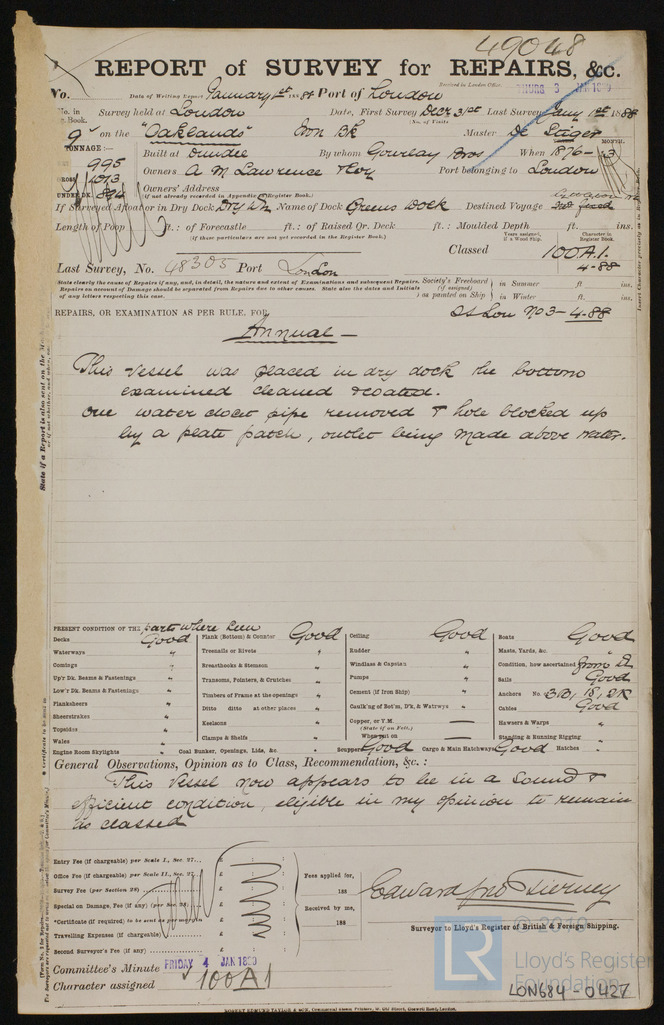 49048
REPORT of SURVEY for REPAIRS, &c.
Received in London Office,
THURS 3 JAN 18
No. Date of Writing Report January 1st 188 Port of London
No. in Survey held at London Date, First Survey Decr 31st Last Survey Jany 1st 188
Book. (No. of Visits
9 on the "Oaklands" Iron Bk Master De
TONNAGE:— MONTH.
Built at Dundee By whom Gourlay Bros When 1876-3
995
GROSS 1013 Owners A M Lawrence & Coy Port belonging to London
UNDER DK. 894 Owners' Address
(if not already recorded in Appendix to Register Book.)
If Surveyed Afloat or in Dry Dock Dry Dk Name of Dock Greens Dock Destined Voyage
Length of Poop ft.: of Forecastle ft.: of Raised Qr. Deck ft.: Moulded Depth ft. ins.
(If these particulars are not yet recorded in the Register Book.)
Years assigned, if a Wood Ship. Character in Register Book.
Classed 100A.1.
4-88
Last Survey, No. 48305 Port London
State clearly the cause of Repairs if any, and, in detail, the nature and extent of Examinations and subsequent Repairs.
Repairs on account of Damage should be separated from Repairs due to other causes. State also the dates and Initials
of any letters respecting this case.
Society's Freeboard (if assigned) as painted on Ship in Summer ft. ins.
in Winter ft. ins.
REPAIRS, OR EXAMINATION AS PER RULE, FOR SS Lon No 3-4-88
Annual —
This Vessel was placed in dry dock the bottom
examined cleaned & coated.
One water closet pipe removed & hole blocked up
by a plate patch, outlet being made above water.
PRESENT CONDITION OF THE parts where seen
Decks Good Plank (Bottom) & Counter Good Ceiling Good Boats Good
Waterways " Treenails or Rivets " Rudder " Masts, Yards, &c. "
Comings " Breasthooks & Stemson " Windlass & Capstan " Condition, how ascertained from D
Up'r Dk. Beams & Fastenings " Transoms, Pointers, & Crutches " Pumps " Sails Good
Low'r Dk. Beams & Fastenings " Timbers of Frame at the openings " Cement (if Iron Ship) " Anchors No. 3B, 1S, 2K
Planksheers " Ditto ditto at other places " Caulk'g of Bot'm, D'k, & Watrwys " Cables Good
Sheerstrakes " Keelsons " Copper, or Y.M. — Hawsers & Warps "
(State if on Felt.)
Topsides " Clamps & Shelfs " When put on — Standing & Running Rigging "
Wales "
Engine Room Skylights " Coal Bunker, Openings, Lids, &c. " Scuppers Good Cargo & Main Hatchways Good Hatches "
General Observations, Opinion as to Class, Recommendation, &c.:
This Vessel now appears to be in a sound &
efficient condition, eligible in my opinion to remain
as classed
Entry Fee (if chargeable) per Scale I., Sec. 27... £ : :
Office Fee (if chargeable) per Scale II., Sec. 27... £ : :
Survey Fee (per Section 28) £ : :
Special on Damage, Fee (if any) (per Sec. 28) £ : :
*Certificate (if required) to be sent as per margin
Travelling Expenses (if chargeable) £ : :
Second Surveyor's Fee (if any) £ : :
Fees applied for,
188
Received by me,
188
Edward Jno Tierney
Surveyor to Lloyd's Register of British & Foreign Shipping.
Committee's Minute FRIDAY 4 JAN 18
Character assigned 100A1
© 2019
LR
Lloyd's Register
Foundation
LON684-0427
ROBERT EDMUND TAYLOR & SON, Commercial Steam Printers, 19, Old Street, Goswell Road, London.